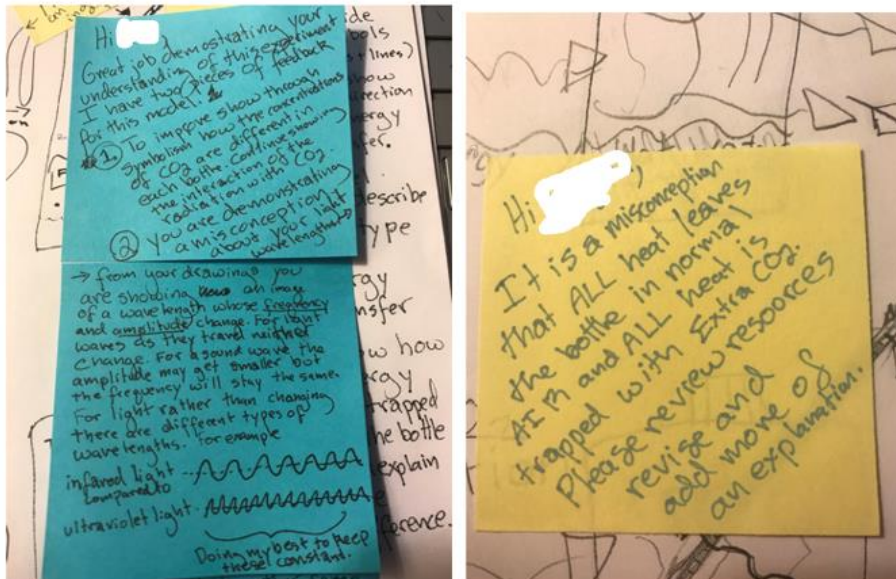 Hi
Great job demostrating your
understanding of this experiment
I have two pieces of feedback
for this model:
1. To improve show through
symbolism how the concentrations
of CO2 are different in
each bottle. Continue showing
the interaction of the
radiation with CO2.
2 You are demonstrating
a misconception
about your light
wavelengths →
→ from your drawings you
are showing an image
of a wavelength whose frequency
and amplitude change. For light
waves as they travel neither
change. For a sound wave the
amplitude may get smaller but
the frequency will stay the same.
For light rather than changing
there are different types of
wavelengths. For example
infared light
compared to
ultraviolet light
Doing my best to keep
these constant.
ide
bols
lines)
show
direction
ergy
sfer.
describe
type
rgy
nsfer
w how
rgy
trapped
he bottle
explain
ference.
Hi
It is a misconception
that ALL heat leaves
the bottle in normal
AIR and ALL heat is
trapped with Extra CO2.
Please review resources
revise and
add more of
an explanation.